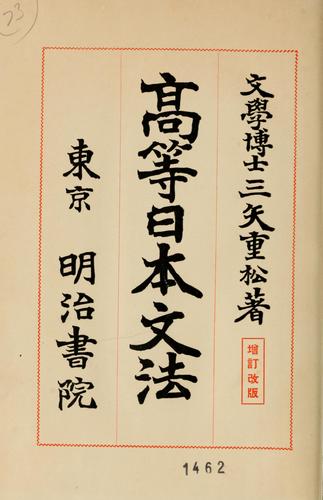 文學博士三矢重松著
增訂改版
高等日本文法
東京 明治書院
1462
73